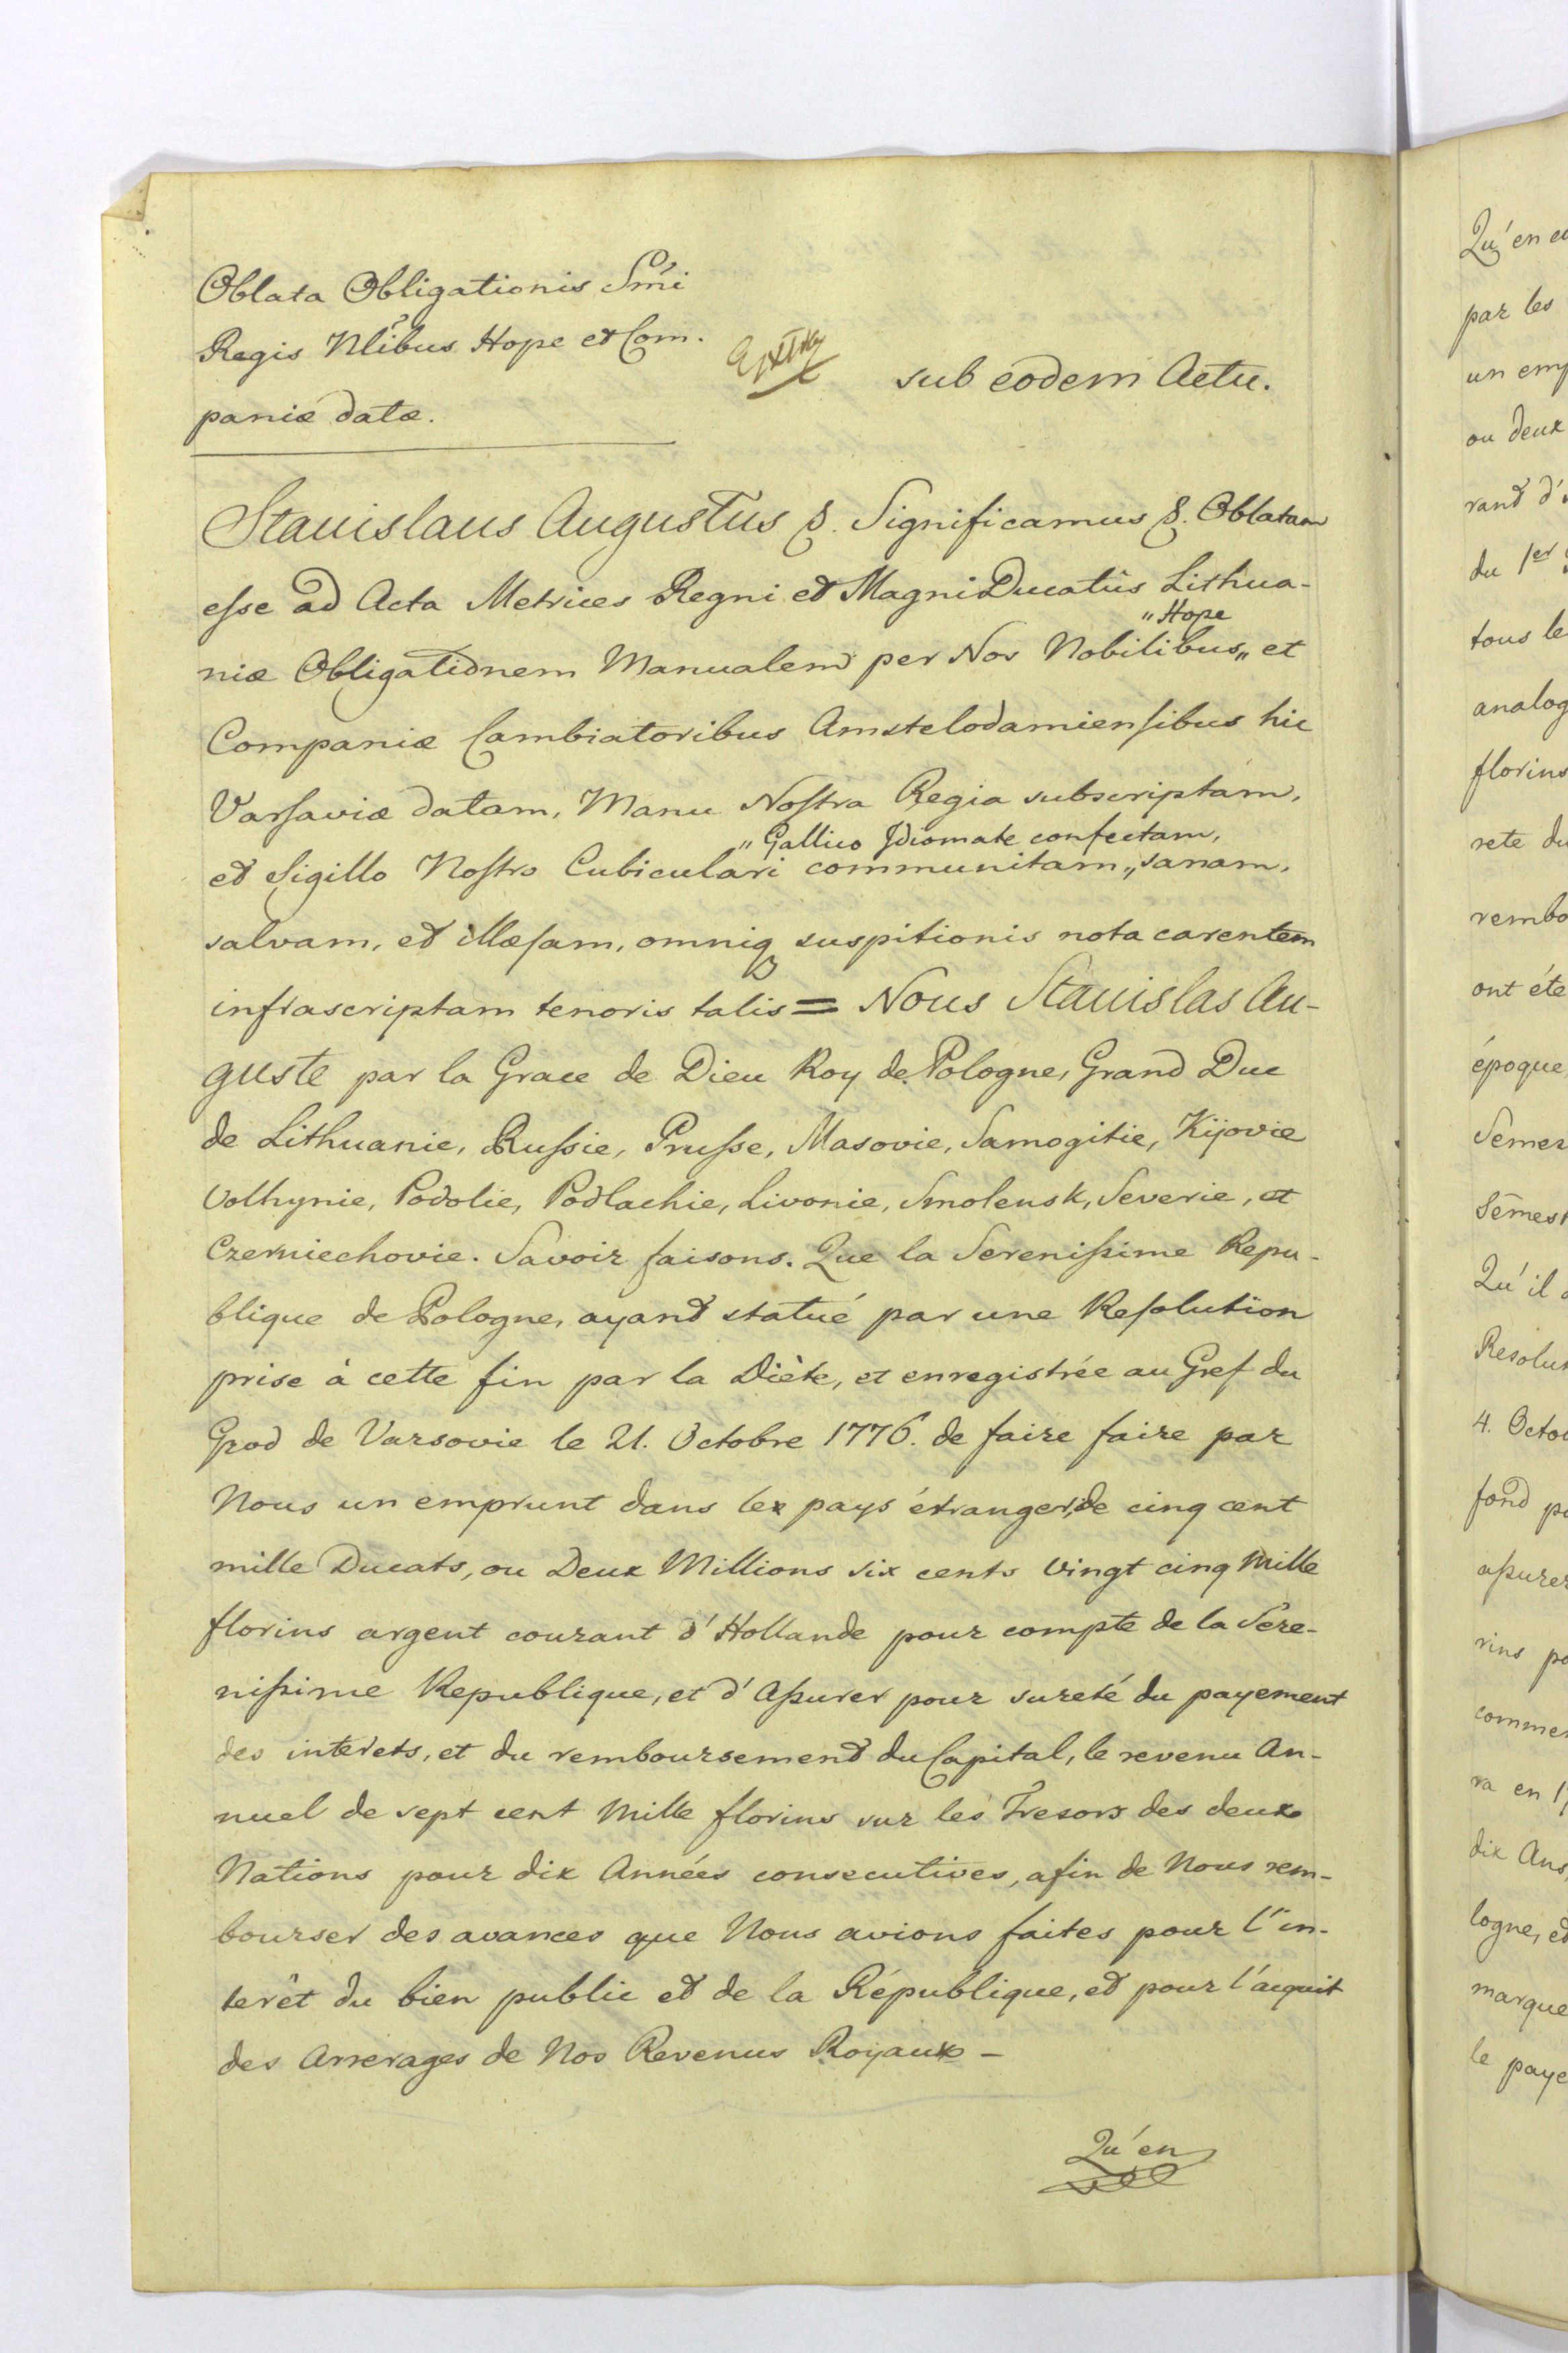 Oblata Obligationis Smi
Regis Nlibus Hope et Com.
paniæ datæ.
sub eodem Actu.
Stanislaus Augustus &. Significamus &. Oblatam
esse ad Acta Metrices Regni et Magni Ducatûs Lithua-
"Hope
niæ Obligationem Manualem per Nos Nobilibus„ et
Companiæ Cambiatoribus Amstelodamiensibus hic
Varsaviæ datam, Manu Nostra Regia subscriptam,
"Gallico Idiomate confectam,
et Sigillo Nostro Cubiculari communitam„ sanam,
salvam, et illæsam, omniq suspitionis nota carentem
infrascriptam tenoris talis = Nous Stanislas Au-
guste par la Grace de Dieu Roy de Pologne, Grand Duc
de Lithuanie, Russie, Prusse, Masovie, Samogitie, Kijovie
Volhynie, Podolie, Podlachie, Livonie, Smolensk, Severie, et
Czerniechovie. Savoir faisons. Que la Serenissime Repu-
blique de Pologne, ayant statué par une Resolution
prise à cette fin par la Diète, et enregistrée au Gref du
Grod de Varsovie le 21. Octobre 1776. de faire faire par
Nous un emprunt dans les pays étranger, de cinq cent
mille Ducats, ou Deux Millions six cents vingt cinq Mille
florins argent courant d'Hollande pour compte de la Sere-
nissime Republique, et d'Assurer pour sureté du payement
des interets, et du remboursement du Capital, le revenu An-
nuel de sept cent Mille florins sur les Tresors des deux
Nations pour dix Années consecutives, afin de Nous rem-
bourser des avances que Nous avions faites pour l'in-
terêt du bien public et de la République, et pour l'acquit
des Arrerages de Nos Revenus Royaux -
Qu'en
Qu'en
par les
un
ou deux
rant
du 1er
tous
florins
ont
époque
Qu'il
4.
fond
en
dix Ans
le